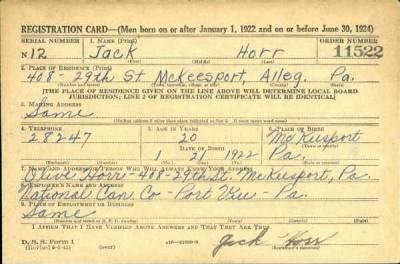 REGISTRATION CARD—(Men born on or after January 1, 1922 and on or before June 30, 1924)
SERIAL NUMBER 1. NAME (Print) ORDER NUMBER
N 12 Jack Horr 11522
(First) (Middle) (Last)
2. PLACE OF RESIDENCE (Print)
408-29th St McKeesport, Alleg. Pa.
[THE PLACE OF RESIDENCE GIVEN ON THE LINE ABOVE WILL DETERMINE LOCAL BOARD
JURISDICTION; LINE 2 OF REGISTRATION CERTIFICATE WILL BE IDENTICAL]
3. MAILING ADDRESS
Same
4. TELEPHONE 5. AGE IN YEARS 6. PLACE OF BIRTH
28247 20 McKeesport
DATE OF BIRTH
1 21 1922 Pa.
7. NAME AND ADDRESS OF PERSON WHO WILL ALWAYS KNOW YOUR ADDRESS
Olive Horr-408-29th St. McKeesport, Pa.
8. EMPLOYER'S NAME AND ADDRESS
National Can. Co-Port Vue-Pa.
9. PLACE OF EMPLOYMENT OR BUSINESS
Same
I AFFIRM THAT I HAVE VERIFIED ABOVE ANSWERS AND THAT THEY ARE TRUE.
D. S. S. Form 1 Jack Horr